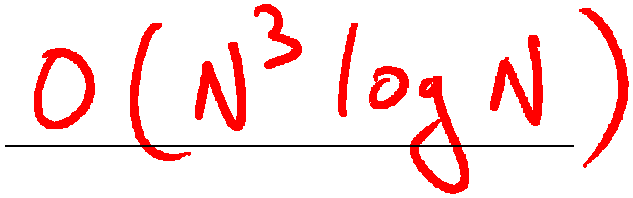 O(N³ log N)